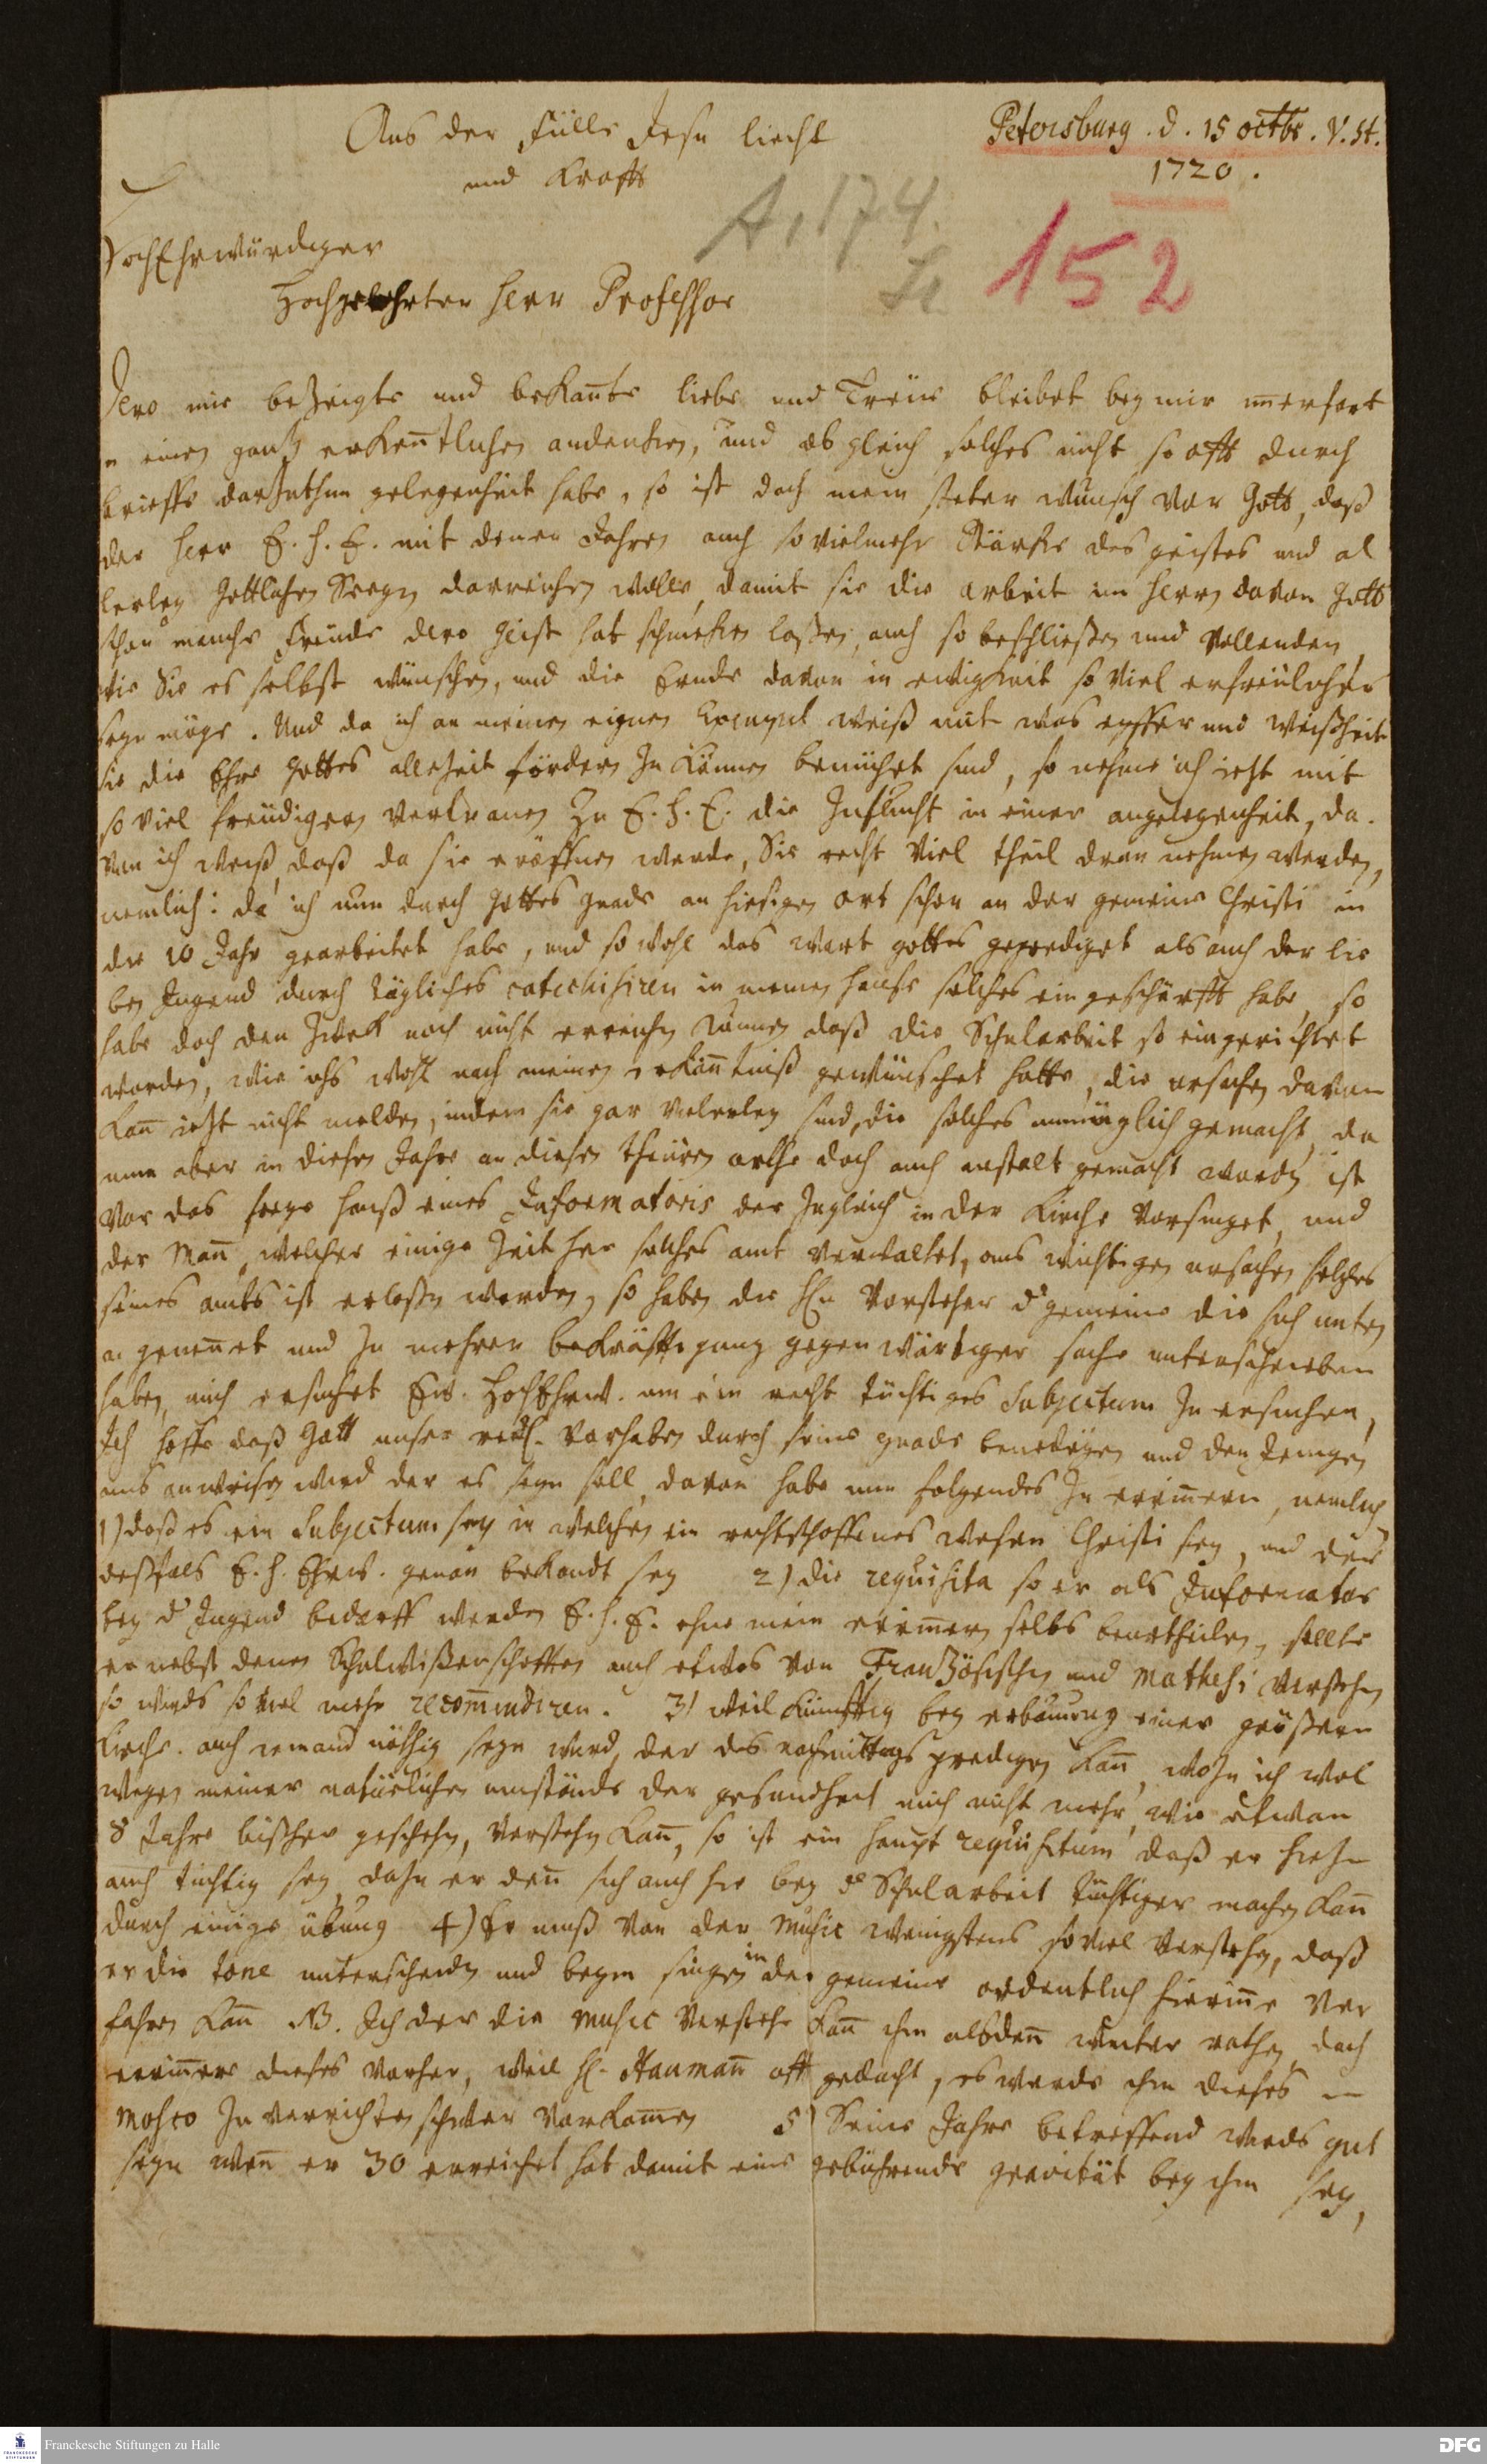 Aus der Fülle Jesu Liecht
und Krafft
Petersburg. d. 15 octbr. V. St.
1720.
A, 174
152
HochEhrwürdiger
Hochgelehrter Herr Professor
Dero mir bezeigte und bekante liebe und Treüe bleibet bey mir imerfort
in einen gantz erkentlichen andencken, und ob gleich solches nicht so offt durch
brieffe darzuthun gelegenheit habe, so ist doch mein steter wunsch vor Gott, daß
der Herr E. H. E. mit denen Jahren auch so vielmehr Stärcke des geistes und al
lerley Göttlichen Seegen darreichen wolle, damit sie die arbeit im Herrn davon Gott
schon manche Freude dero Geist hat schmecken laßen, auch so beschließen und vollenden,
wie Sie es selbst wünschen, und die Ernde davon in ewigkeit so viel erfreülicher
seyn möge. Und da ich an meinen eignen Exempel weiß mit was eyffer und weißheit
sie die Ehre Gottes allezeit fördern zu können bemühet sind, so nehme ich jetzt mit
so viel freüdigern vertrauen zu E. H. E. die Zuflucht in einer angelegenheit, da-
von ich weiß, daß da sie eröffnen werde, Sie recht viel theil dran nehmen werden,
nemlich: da ich nun durch Gottes gnade an hiesigen ort schon an der gemeine Christi in
die 10 Jahr gearbeitet habe, und so wohl das wort gottes geprediget als auch der lie
ben Jugend durch tägliches catechisiren in meinen hause solches eingeschärfft habe, so
habe doch den Zweck noch nicht erreichen können daß die Schularbeit so eingerichtet
worden, wie ichs wohl nach meinen erkäntniß gewünschet hätte, die ursachen davon
kan jetzt nicht melden, indem sie gar vielerley sind, die solches unmüglich gemacht, da
nun aber in diesen Jahre an diesen theüren orthe doch auch anstalt gemacht worden ist
vor das freye hauß eines Informatoris der zugleich in der Kirche vorsinget, und
der Man, welcher einige Zeit her solches amt verwaltet, aus wichtigen ursachen solches
seines amts ist erlaßen worden, so haben die Hn Vorsteher der gemeine die sich unten
a. genennet und zu mehrer bekräfftigung gegenwärtiger sache unterschrieben
haben, mich ersuchet Ew. HochEhrw. um ein recht tüchtiges Subjectum zu ersuchen,
Ich hoffe daß Gott unser redl. vorhaben durch seine gnade benedeyen und den jenigen
uns anweisen wird der es seyn soll, davon habe nun folgendes zu erinnern, nemlich
1) daß es ein Subjectum sey in welchen ein rechtschaffenes wesen Christi sey, und der
desfals E. H. Ehrw. genau bekandt sey 2) die requisita so er als Informator
bey der Jugend bedarff werden E. H. E. ohne mein erinnern selbs beurtheilen, sollte
er nebst denen Schulwißenschafften auch etwas von Französischen und mathesi verstehen
so wirds so viel mehr recommendiren. 3) weil künfftig bey erbauung einer größern
Kirche auch jemand nöthig seyn wird, der des nachmittags predigen kan, wozu ich wol
wegen meiner natürlichen umstände der gesundheit mich nicht mehr, wie etwan
8 Jahre bißher geschehen, verstehen kan, so ist ein haupt requisitum daß er hiezu
auch tüchtig sey, dazu er den sich auch hie bey der Schularbeit tüchtiger machen kan
durch einige übung 4) Er muß von der music wenigstens so viel verstehen, daß
er die tone unterscheiden und beym singen in der gemeine ordentlich hierinne ver
fahren kan NB. Ich der die music verstehe kan ihm alsden weiter rathen, doch
erinnere dieses vorher, weil H. Naumann offt gedacht, es werde ihm dieses in
Mosco zu verrichten schwer vorkomen 5) Seine Jahre betreffend wirds gut
seyn wen er 30 erreichet hat damit eine gebührende gravität bey ihm sey,
Franckesche Stiftungen zu Halle
DFG